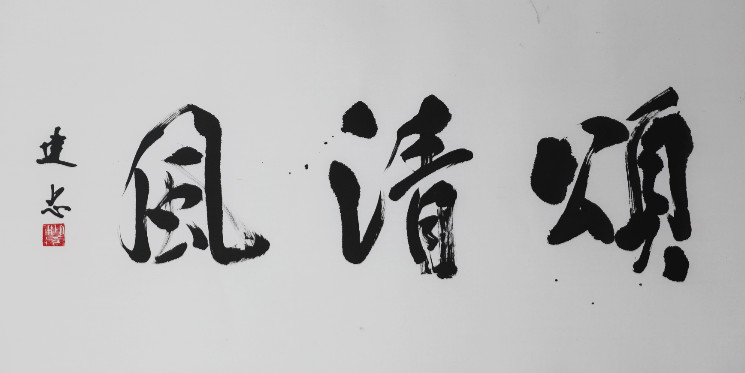 頌清風
建忠